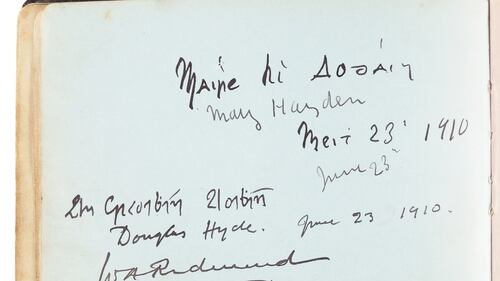 Máire Ní Aodáin
Mary Hayden
Meit 23 1910
June 23
An Craoibhín Aoibhinn
Douglas Hyde. June 23 1910.
WA Redmond